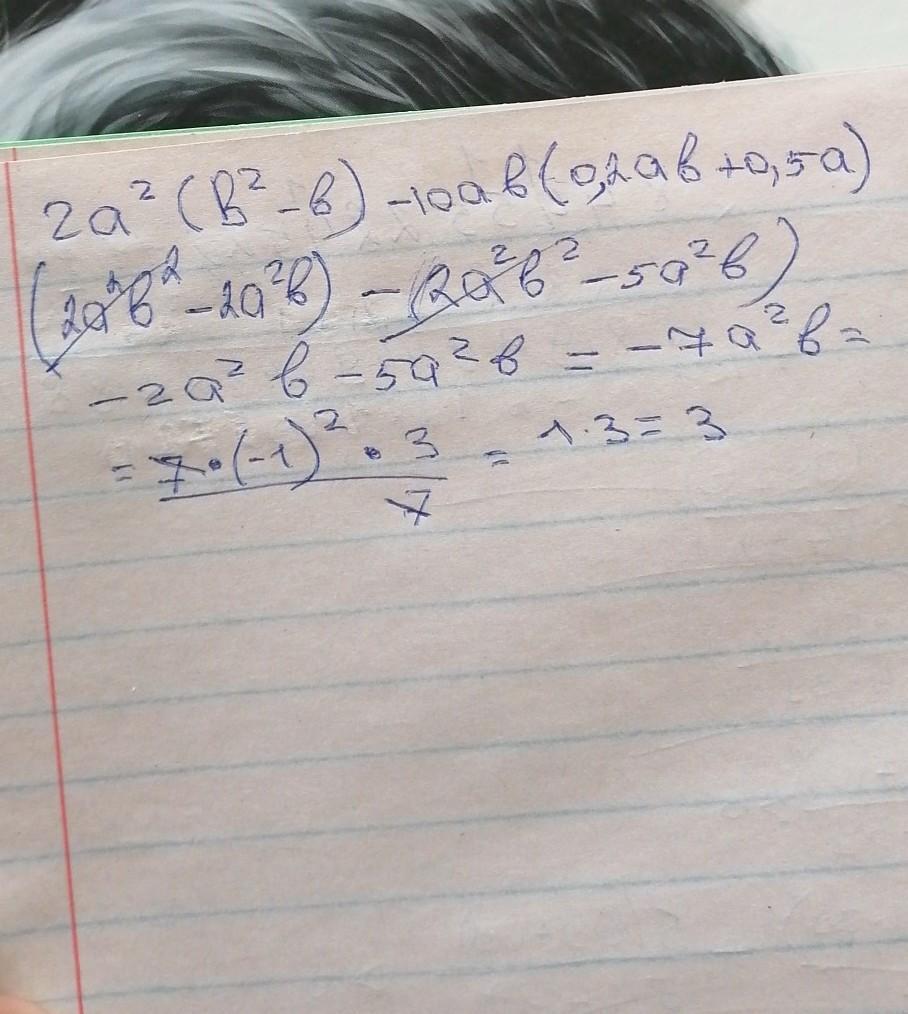 2a² (b² - b) - 10ab (0,2ab + 0,5a)
(2a²b² - 2a²b) - (2a²b² - 5a²b)
- 2a² b - 5a² b = - 7a² b =
= 7 · (-1)² · 3 / 7 = 1 · 3 = 3